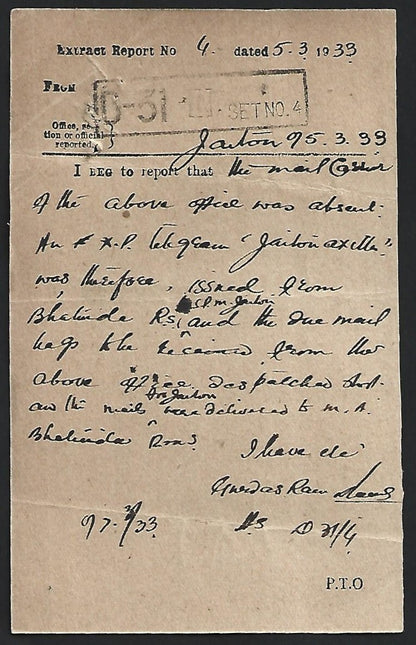 Extract Report No 4. dated 5.3.1933
FROM
D-31 SET NO. 4
Office, sec-
tion or official
reported.
Jaiton 5.3.33
I BEG to report that the mail
of the above office was absent.
An X.P. telegram "Jaiton
was therefore, issued from
Bhatinda R.S. and the due mail
bags to be received from the
above office despatched
for Jaiton
and the mails were delivered to m.
Bhatinda
I have etc
Gurdas Ram
/33 D 31/4
P.T.O